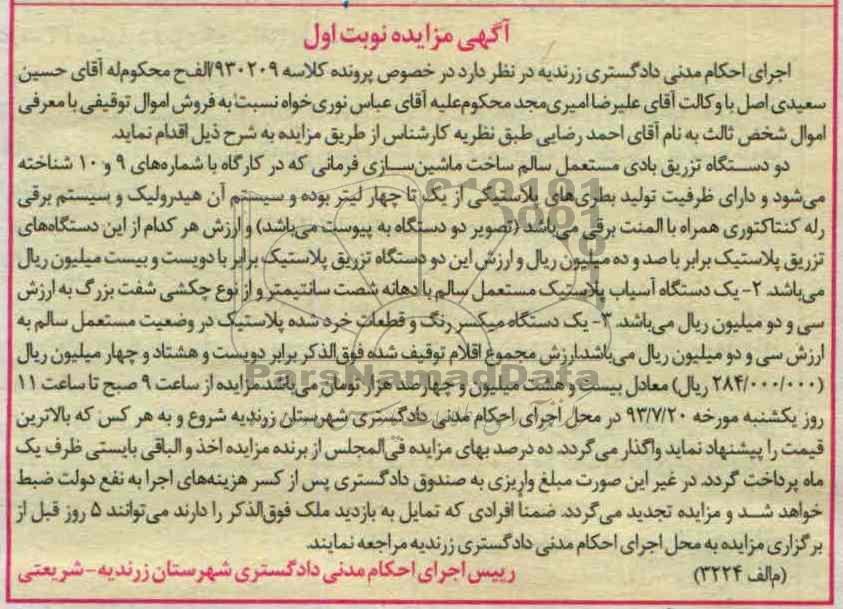 آگهی مزایده نوبت اول
اجرای احکام مدنی دادگستری زرندیه در نظر دارد در خصوص پرونده کلاسه ۹۳۰۲۰۹/الف‌ح محکوم‌له آقای حسین
سعیدی اصل با وکالت آقای علیرضا امیری‌مجد محکوم‌علیه آقای عباس نوری‌خواه نسبت به فروش اموال توقیفی با معرفی
اموال شخص ثالث به نام آقای احمد رضایی طبق نظریه کارشناس از طریق مزایده به شرح ذیل اقدام نماید.
دو دستگاه تزریق بادی مستعمل سالم ساخت ماشین‌سازی فرمانی که در کارگاه با شماره‌های ۹ و ۱۰ شناخته
می‌شود و دارای ظرفیت تولید بطری‌های پلاستیکی از یک تا چهار لیتر بوده و سیستم آن هیدرولیک و سیستم برقی
رله کنتاکتوری همراه با المنت برقی می‌باشد (تصویر دو دستگاه به پیوست می‌باشد) و ارزش هر کدام از این دستگاه‌های
تزریق پلاستیک برابر با صد و ده میلیون ریال و ارزش این دو دستگاه تزریق پلاستیک برابر با دویست و بیست میلیون ریال
می‌باشد. ۲- یک دستگاه آسیاب پلاستیک مستعمل سالم با دهانه شصت سانتیمتر و از نوع چکشی شفت بزرگ به ارزش
سی و دو میلیون ریال می‌باشد. ۳- یک دستگاه میکسر رنگ و قطعات خرد شده پلاستیک در وضعیت مستعمل سالم به
ارزش سی و دو میلیون ریال می‌باشد.ارزش مجموع اقلام توقیف شده فوق‌الذکر برابر دویست و هشتاد و چهار میلیون ریال
(۲۸۴/۰۰۰/۰۰۰ ریال) معادل بیست و هشت میلیون و چهارصد هزار تومان می‌باشد.مزایده از ساعت ۹ صبح تا ساعت ۱۱
روز یکشنبه مورخه ۹۳/۷/۲۰ در محل اجرای احکام مدنی دادگستری شهرستان زرندیه شروع و به هر کس که بالاترین
قیمت را پیشنهاد نماید واگذار می‌گردد. ده درصد بهای مزایده فی‌المجلس از برنده مزایده اخذ و الباقی بایستی ظرف یک
ماه پرداخت گردد. در غیر این صورت مبلغ واریزی به صندوق دادگستری پس از کسر هزینه‌های اجرا به نفع دولت ضبط
خواهد شد و مزایده تجدید می‌گردد. ضمناً افرادی که تمایل به بازدید ملک فوق‌الذکر را دارند می‌توانند ۵ روز قبل از
برگزاری مزایده به محل اجرای احکام مدنی دادگستری زرندیه مراجعه نمایند.
(م‌الف ۳۲۲۴) رییس اجرای احکام مدنی دادگستری شهرستان زرندیه-شریعتی
ParsNamadData